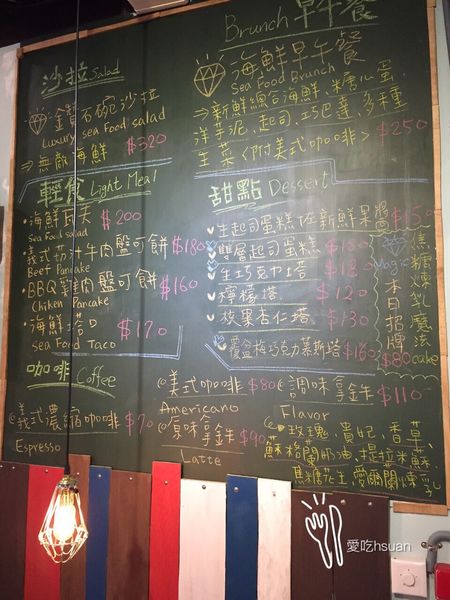 沙拉 Salad
金鑽石碗沙拉
Luxury sea food salad
⇒無敵海鮮 $320
輕食 Light Meal
•海鮮瓦夫 $200
Sea food salad
•義式茄汁牛肉盤可餅 $180
Beef Pancake
•BBQ雞肉盤可餅 $160
Chiken Pancake
•海鮮塔口 $170
Sea food Taco
咖啡 Coffee
義式濃縮咖啡 $70
Espresso
Brunch 早午餐
海鮮早午餐
Sea Food Brunch
⇒新鮮綜合海鮮.糖心蛋.
洋芋泥.起司.巧巴達.多種
生菜<附美式咖啡> $250
甜點 Dessert
生起司蛋糕佐新鮮果醬 $150
雙層起司蛋糕 $150
生巧克力塔 $120
檸檬塔 $120
效果杏仁塔 $130
覆盆梅巧克力慕斯塔 $160
焦糖煉乳魔法
Magic cake
本日招牌
$80
美式咖啡 $80
Americano
原味拿鐵 $90
Latte
調味拿鐵 $110
Flavor
玫瑰.貴妃.香草.
蘇格蘭奶油.提拉米蘇.
焦糖.花生.愛爾蘭.煉乳
愛吃hsuan